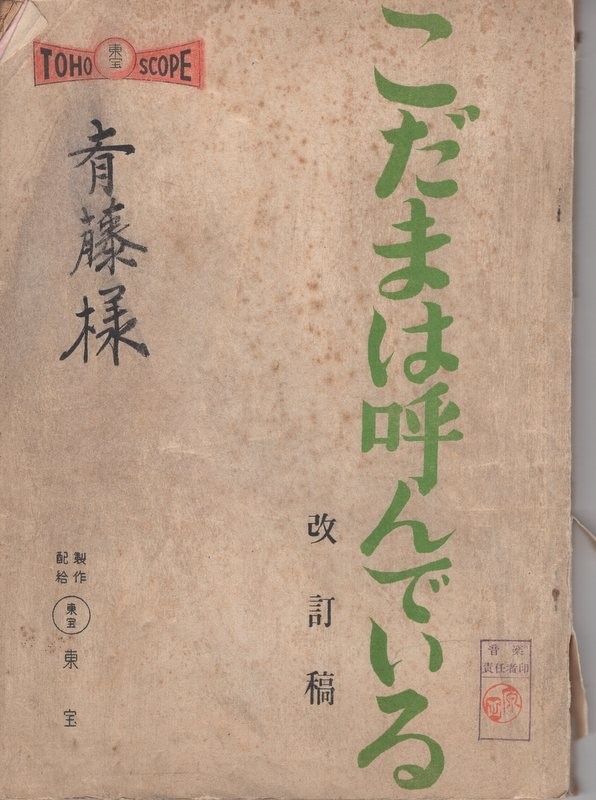 TOHO 東宝 SCOPE
こだまは呼んでいる
改訂稿
斉藤様
製作
配給
東宝
東宝
音楽
責任者印